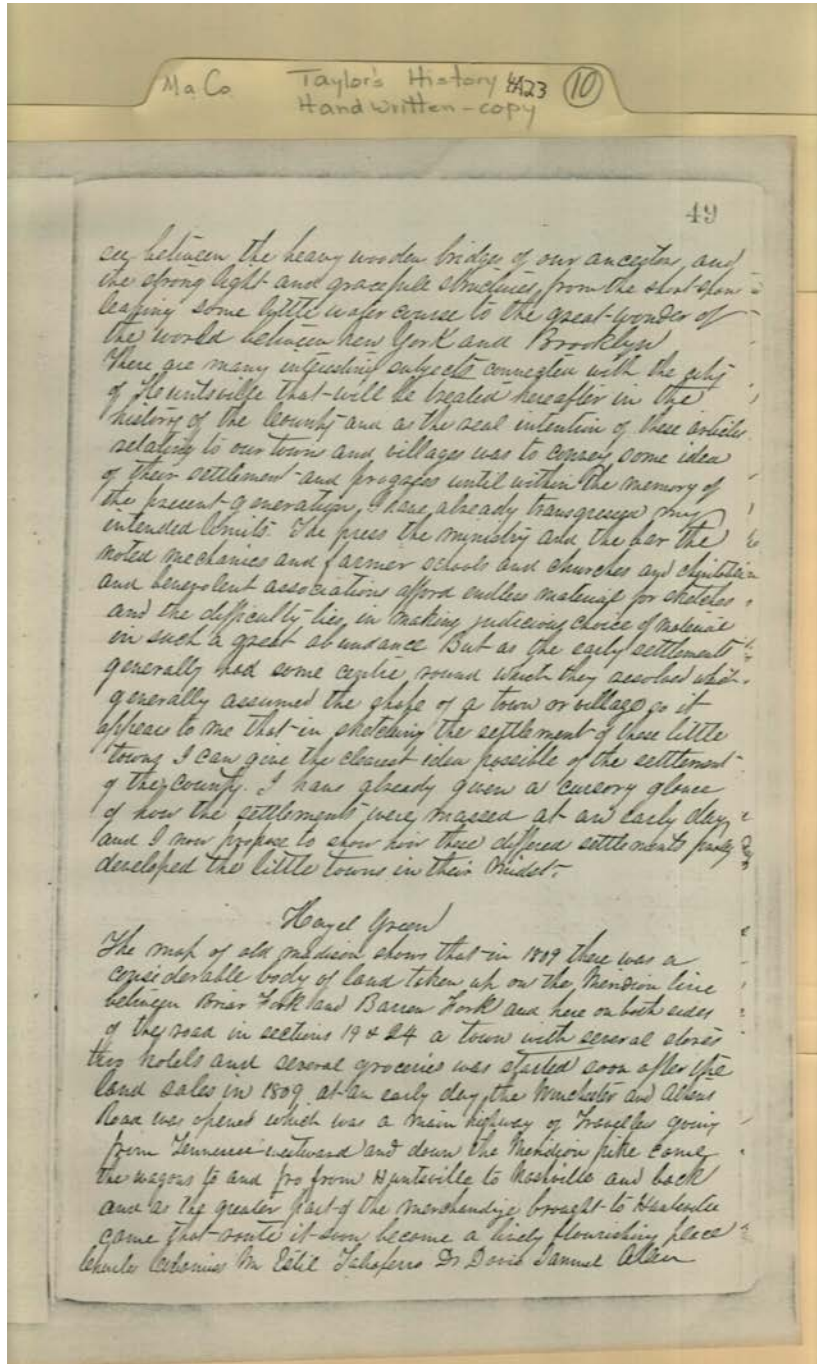 MaCo Taylor's History 4A23 10
Handwritten-copy
49
see between the heavy wooden bridges of our ancestors, and
the strong light and gracefull structures, from the short span
leaping some little water course to the great wonder of
the world between new York and Brooklyn
There are many interesting subjects connected with the city
of Huntsville that will be treated hereafter in the
history of the County and as the real intention of these articles
relating to our towns and villages was to convey some idea
of their settlement and progress until within the memory of
the present generation, I have already transgressed my
intended limits. The press the ministry and the bar the
noted mechanics and farmer schools and churches and
and benevolent associations afford endless material for sketches
and the difficulty lies in making judicious choice of material
in such a great abundance But as the early settlements
generally had some centre, round which they
generally assumed the shape of a town or village so it
appears to me that in sketching the settlement of these little
towns I can give the clearest idea possible of the settlement
of the county. I have already given a cursory glance
of how the settlements were massed at an early day,
and I now propose to show how these settlements
developed the little towns in their midst.
Hazel Green
The map of old madison shows that in 1809 there was a
considerable body of land taken up on the Meridion line
between Briar Fork and Barren Fork and here on both sides
of the road in sections 19 & 24 a town with several stores
two hotels and several groceries was started soon after the
land sales in 1809 at an early day, the Winchester and Athens
Road was opened which was a main highway of Travellers going
from Tennessee westward and down the Meridion pike came
the wagons to and fro from Huntsville to Nashville and back
and as the greater part of the merchandize brought to Huntsville
came that route it soon become a lively flourishing place
Charles Wm Estil Taliaferro Dr David Samuel Allen